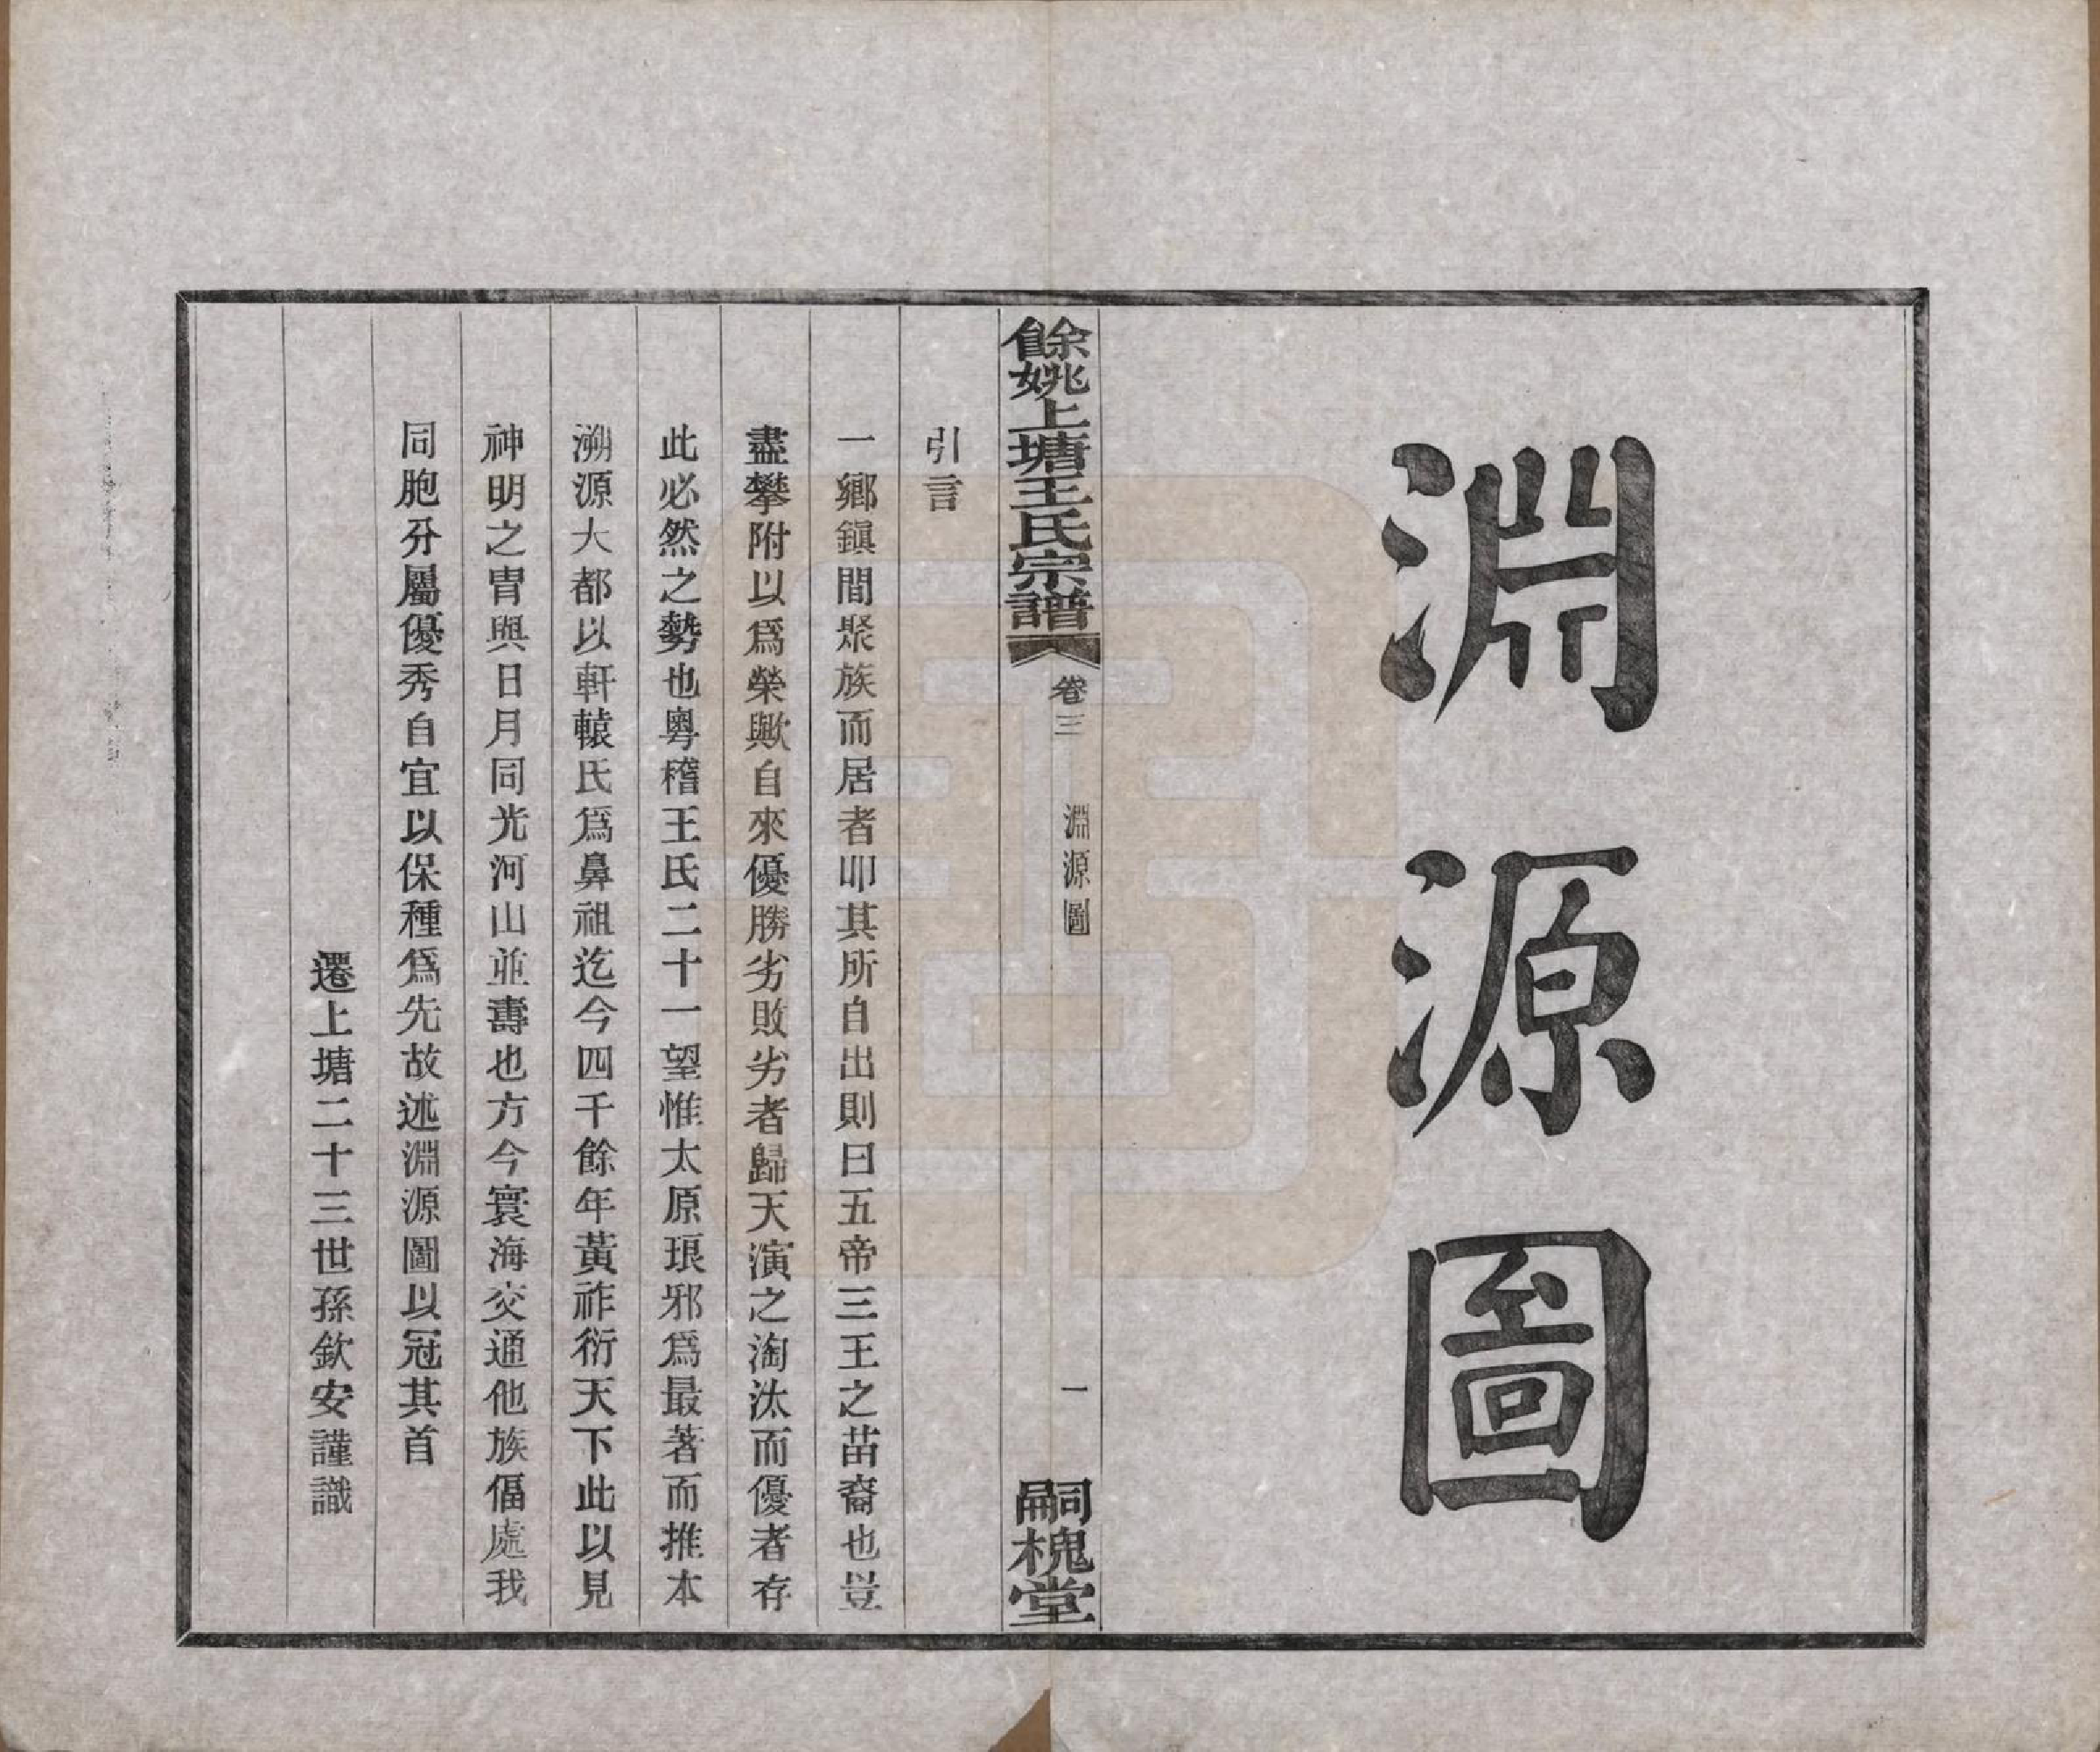 淵源圖
餘姚上塘王氏宗譜
卷三
淵源圖
一
嗣槐堂
引言
一鄉鎭間聚族而居者叩其所自出則曰五帝三王之苗裔也豈
盡攀附以爲榮歟自來優勝劣敗劣者歸天演之淘汰而優者存
此必然之勢也粵稽王氏二十一望惟太原琅邪爲最著而推本
溯源大都以軒轅氏爲鼻祖迄今四千餘年黃祚衍天下此以見
神明之冑與日月同光河山並壽也方今寰海交通他族偪處我
同胞分屬優秀自宜以保種爲先故述淵源圖以冠其首
遷上塘二十三世孫欽安謹識